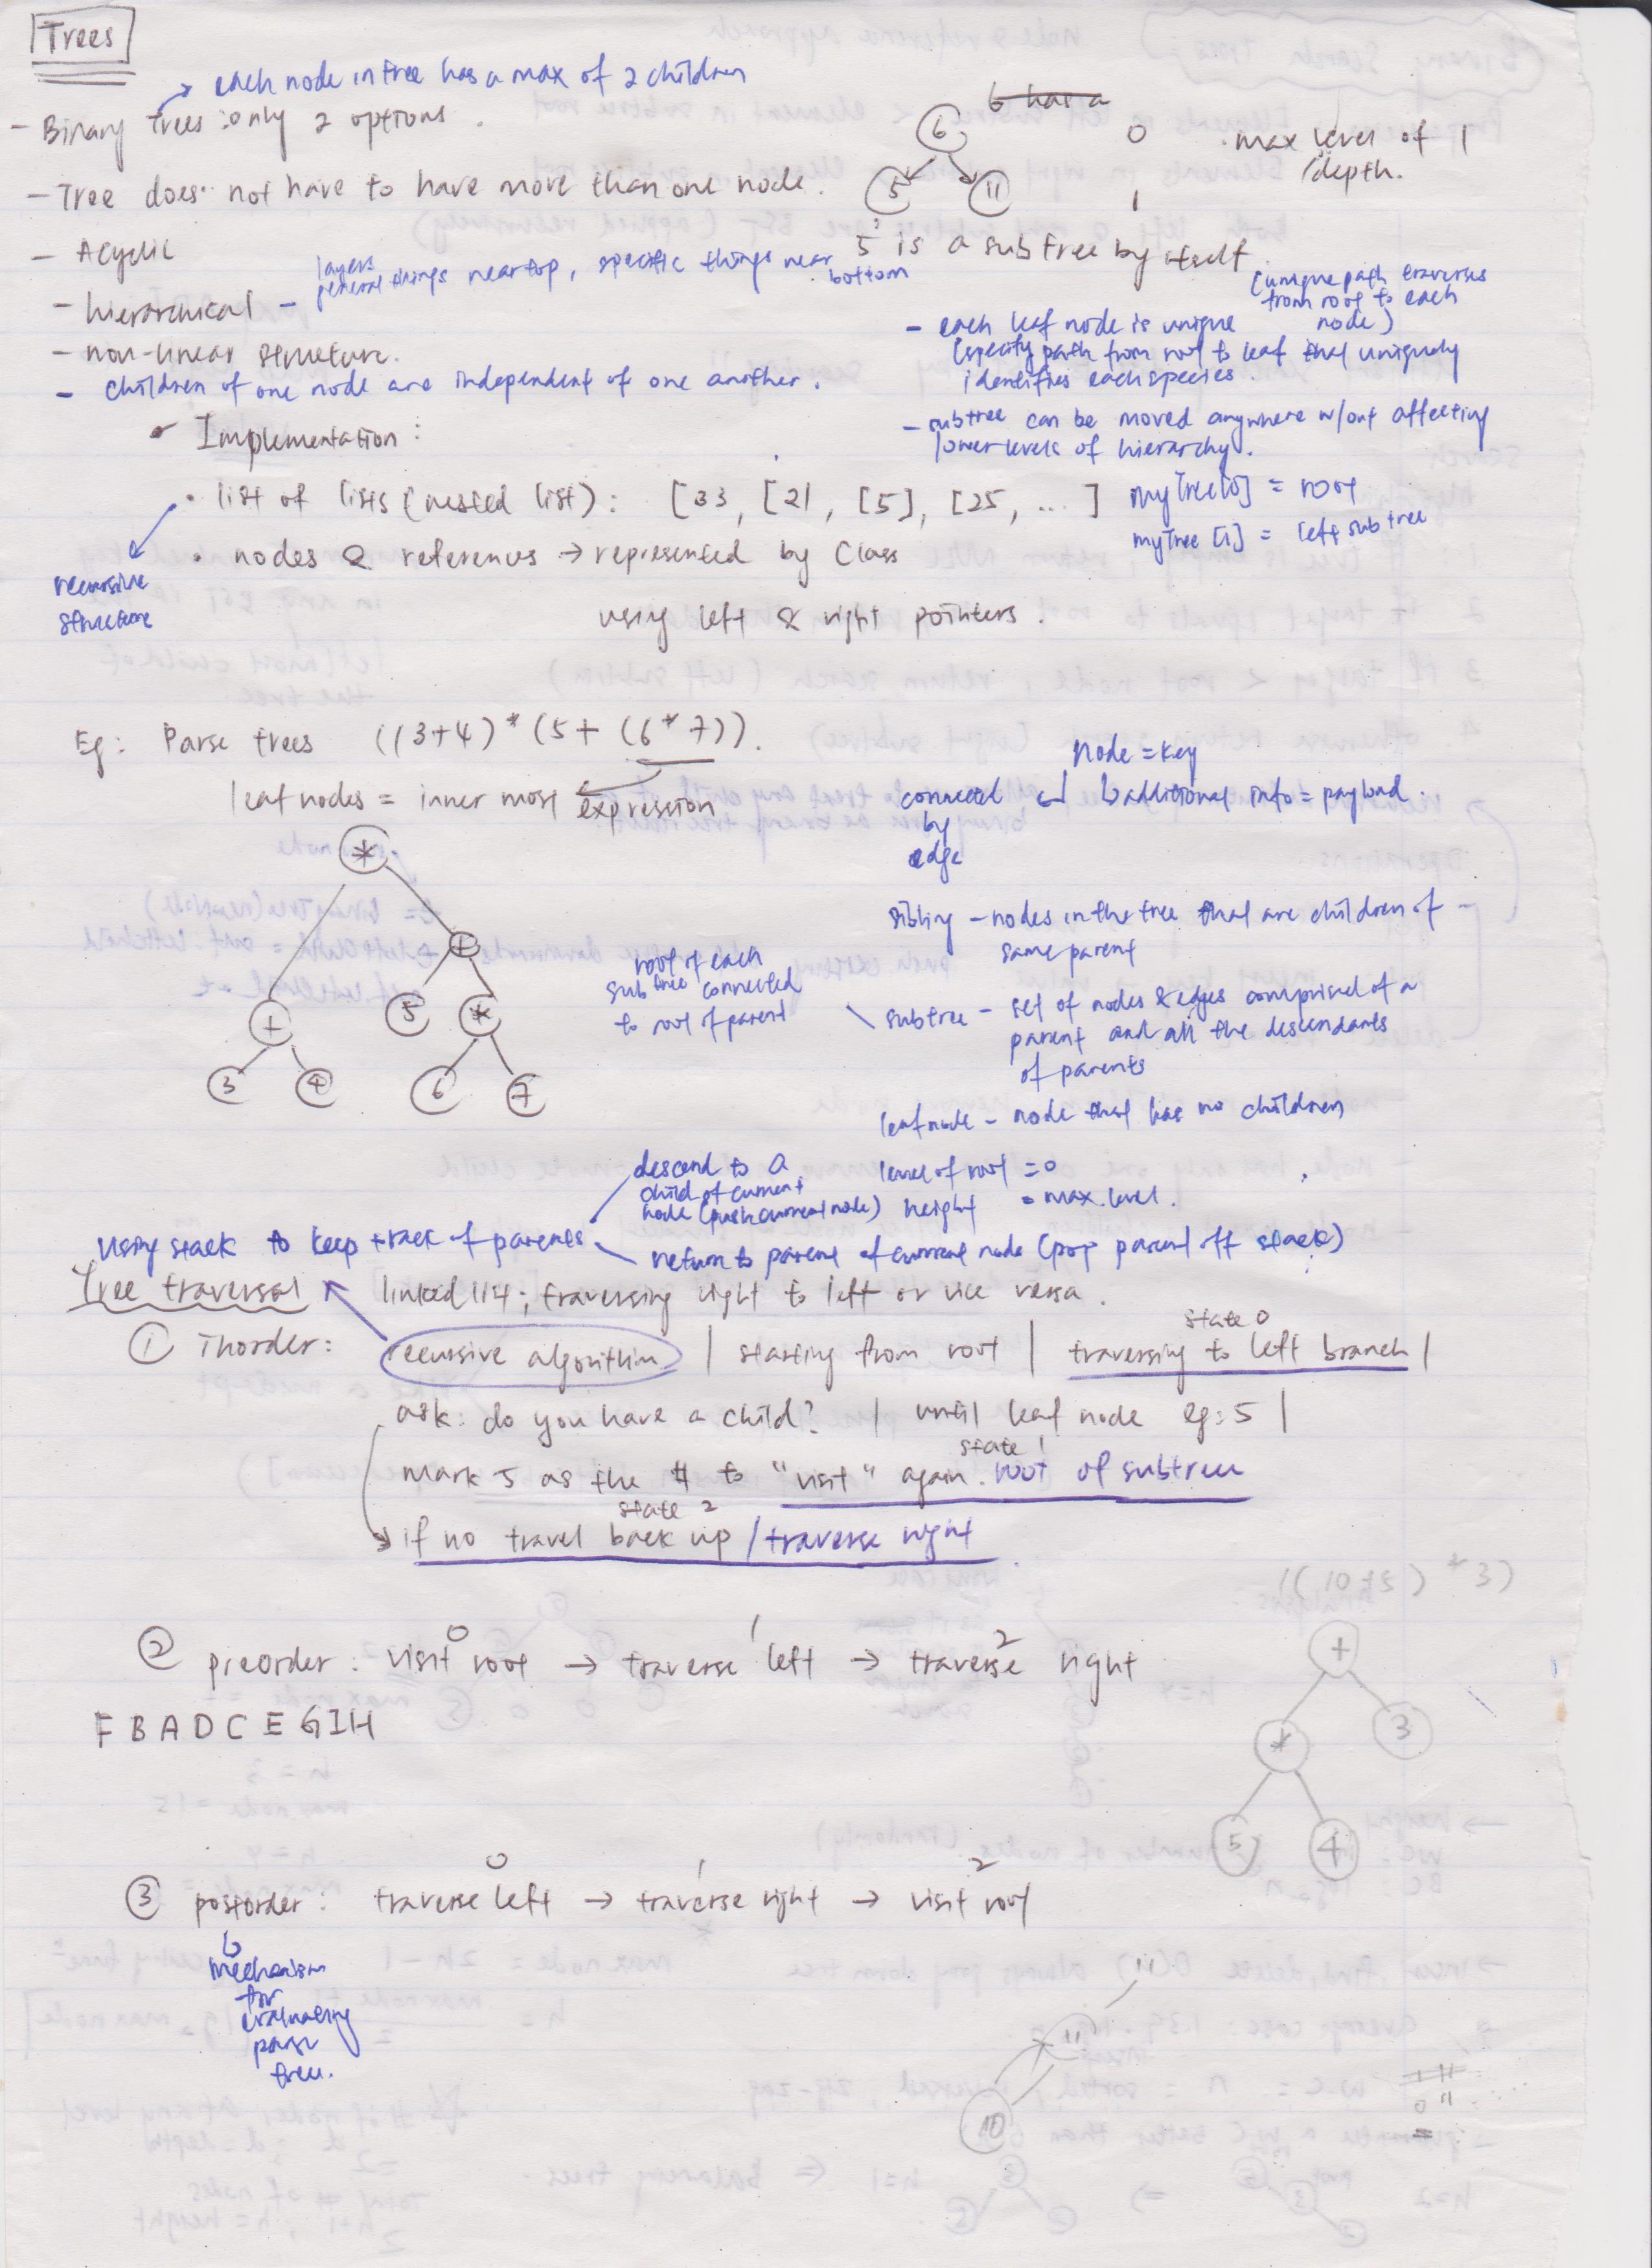 Trees
each node in tree has a max of 2 children
- Binary Trees : only 2 options.
- Tree does not have to have more than one node.
- Acyclic
- hierarchical - layers
general things near top, specific things near bottom
- non-linear structure.
- children of one node are independent of one another.
6 has a
6 0 max level of 1
/depth.
5 11 1
5 is a subtree by itself
(unique path traverses
from root to each
node)
- each leaf node is unique
(specify path from root to leaf that uniquely
identifies each species.
- subtree can be moved anywhere w/out affecting
lower levels of hierarchy.
Implementation:
• list of lists (nested list): [33, [21, [5], [25, ... ]
myTree[0] = root
myTree [1] = left subtree
• nodes & references → represented by Class
using left & right pointers.
recursive
structure
Eg: Parse trees ((3+4)*(5+(6*7)).
leaf nodes = inner most expression
*
+
+ 5 *
3 4 6 7
root of each
subtree connected
to root of parent
Node = key
connected
by
edge
additional info = payload.
sibling - nodes in the tree that are children of
same parent
subtree - set of nodes & edges comprised of a
parent and all the descendants
of parents
leaf node - node that has no children
level of root = 0
height = max. level.
descend to a
child of current
node (push current node)
Using stack to keep track of parents
return to parent of current node (pop parent off stack)
Tree traversal linked list; traversing right to left or vice versa.
① Inorder: recursive algorithm | starting from root | traversing to left branch |
state 0
ask: do you have a child? | until leaf node eg: 5 |
state 1
mark 5 as the # to "visit" again. root of subtree
state 2
if no travel back up / traverse right
0 1 2
② preorder: visit root → traverse left → traverse right
F B A D C E G I H
+
* 3
5 4
0 1 2
③ postorder: traverse left → traverse right → visit root
mechanism
for
evaluating
parse
tree.
11
11
10